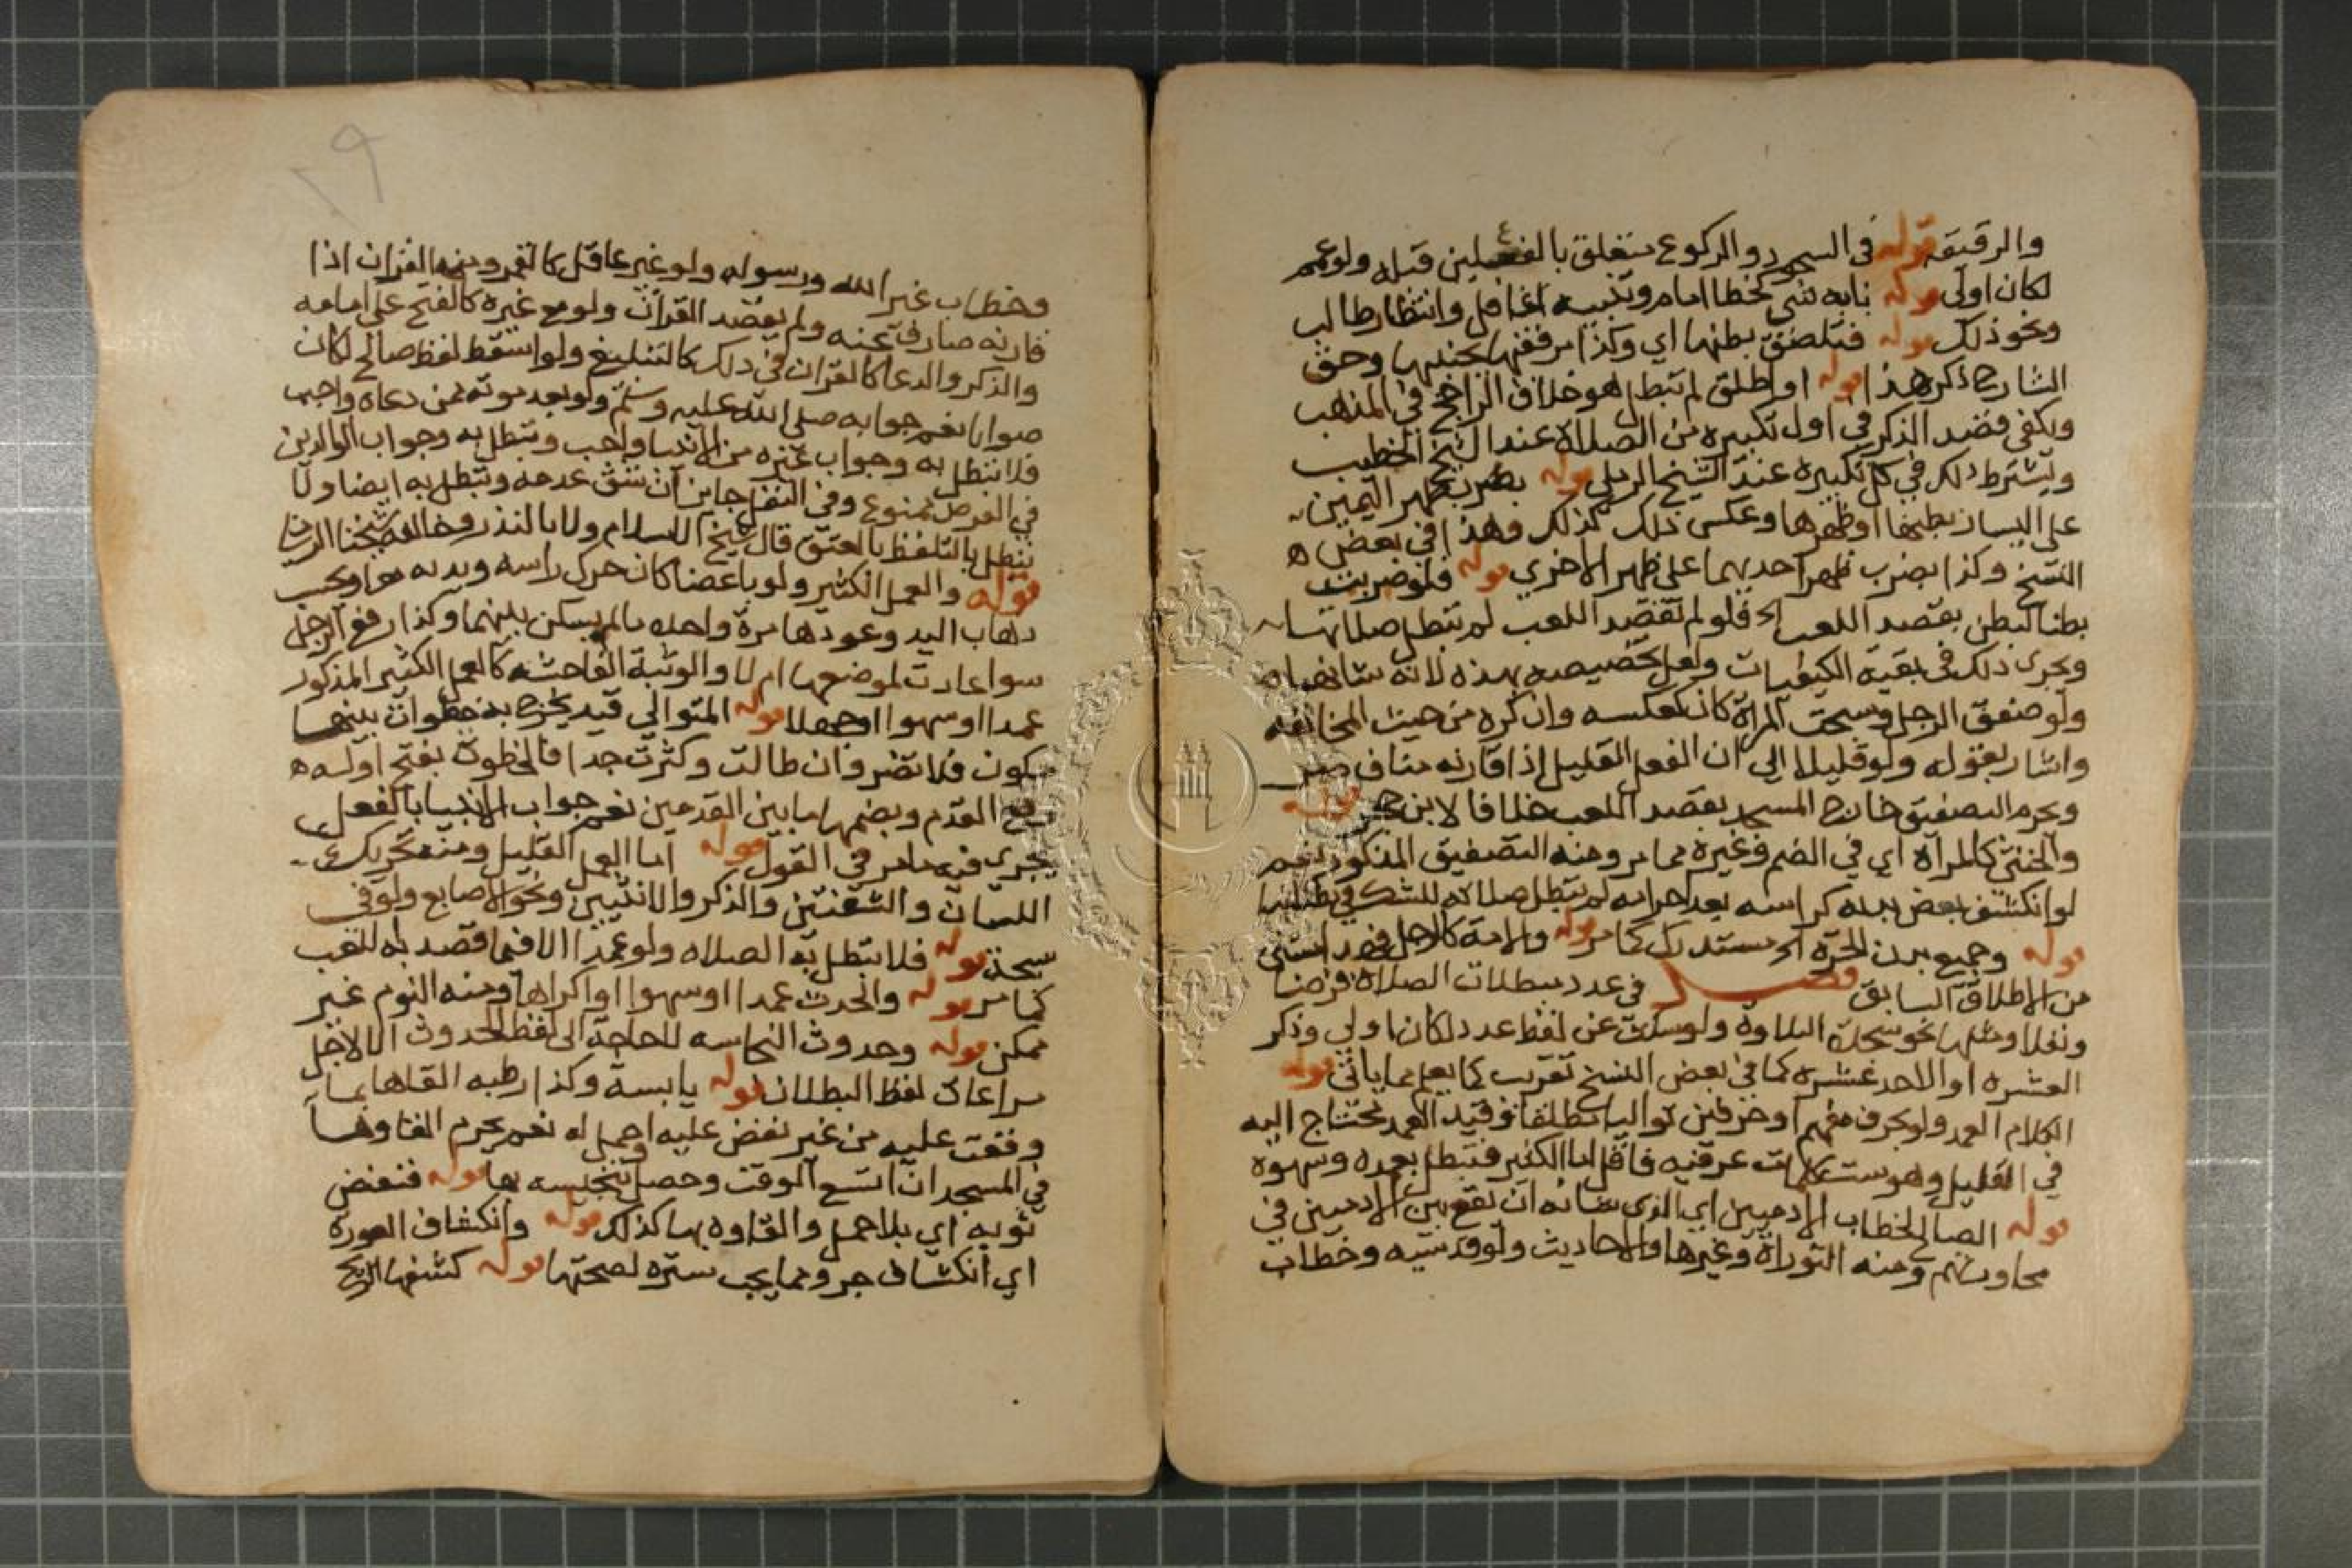 والرقيقة قوله في السجود والركوع متعلق بالفعلين قبله ولو عمم
لكان اولى قوله نابه شي كخطا امام وتنبيه غافل وانتظار طالب
ونحو ذلك قوله فتلصق بطنها اي وكذا مرفقها بجنبيها وحق
الشارح ذكر هذا قوله او اطلق لم تبطل هو خلاف الراجح في المذهب
ويكفي قصد الذكر في اول تكبيره من الصلاة عند الشيخ الخطيب
ويشترط ذلك في كل تكبيرة عند الشيخ الرملي قوله بضرب ظهر اليمين
على اليسار بطنها او ظهرها وعكس ذلك كذلك وهذا في بعض
النسخ وكذا بضرب ظهر احديهما على ظهر الاخري قوله فلو ضربت
بطنا لبطن بقصد اللعب اي فلو لم تقصد اللعب لم تبطل صلاتها
ويجرى ذلك في بقية الكيفيات ولعل تخصيصه بهذه لانه شانها
ولو صفق الرجل وسبحت المراة كان كعكسه وان كره من حيث المخالفة
واشار بقوله ولو قليلا الي ان الفعل القليل اذا قارنه مناف ضر
ويحرم التصفيق خارج المسجد بقصد اللعب خلافا لابن حجر قوله
والخنثي كالمرآة اي في الضم وغيره مما مر ومنه التصفيق المذكور نعم
لو انكشف بعض بدنه كراسه بعد احرامه لم تبطل صلاته للشك في بطلانها
قوله وجميع بدن الحرة اي مستدرك كما مر قوله والامة كالرجل قصد استثنى
من الاطلاق السابق فصل في عدد مبطلات الصلاة فرضا
ونفلا ومثلها نحو سجدة التلاوة ولو سكت عن لفظ عدد لكان اولي وذكر
العشره او الاحد عشره كما في بعض النسخ تقريب كما يعلم مما ياتي قوله
الكلام العمد ولو بحرف مفهم او حرفين تواليا مطلقا وقيد العمد تحتاج اليه
في القليل وهو ست كلمات عرفيه فاقل اما الكثير فتبطل بعمده وسهوه
قوله الصالح لخطاب الادميين اي الذي شانه ان يقع بين الادميين في
محاورتهم ومنه التوراة وغيرها والاحاديث ولو قدسيه وخطاب
١٩
وخطاب غير الله ورسوله ولو غير عاقل كالقمر ومنه القران اذا
قارنه صارف عنه ولم يقصد القرآن ولو مع غيره كالفتح على امامه
والذكر والدعا كالقران في ذلك كالتبليغ ولو اسقط لفظ صالح لكان
صوابا نعم جوابه صلى الله عليه وسلم ولو بعد موته ممن دعاه واجب
فلا تبطل به وجواب غيره من الانبيا واجب وتبطل به وجواب الوالدين
في الفرض ممنوع وفي النفل جايز ان شق عدمه وتبطل به ايضا ولا
تبطل بالتلفظ بالعتق قال شيخ الاسلام ولا بالنذر وخالفه شيخنا الرملي
قوله والعمل الكثير ولو باعضا كان حرك راسه ويديه معا ويحسب
ذهاب اليد وعودها مرة واحدة مالم يسكن بينهما وكذا رفع الرجل
سوا عادت لموضعها ام لا والوثبة الفاحشه كالعمل الكثير المذكور
عمدا او سهوا او جهلا قوله المتوالي قيد يخرج به خطوات بينها
سكون فلا تضر وان طالت وكثرت جدا فالخطوة بفتح اوله
رفع القدم وبضمها ما بين القدمين نعم جواب الانبيا بالفعل
يجري فيه ما مر في القول قوله اما العمل القليل ومنه تحريك
اللسان والشفتين والذكر والانثيين ونحو الاصابع ولو في
سبحة قوله فلا تبطل به الصلاه ولو عمدا الا فيما قصد به اللعب
كما مر قوله والحدث عمدا او سهوا او اكراها ومنه النوم غير
ممكن قوله وحدوث النجاسه لا حاجة الى لفظ الحدوث الا لاجل
مراعات لفظ البطلان قوله يابسة وكذا رطبه القاها بما
وقفت عليه من غير نفض عليه او حمل له نعم يحرم القاوها
في المسجد ان اتسع الوقت وحصل تنجيسه بها قوله فنفض
ثوبه اي بلا حمل والقاوه بها كذلك قوله وانكشاف العورة
اي انكشاف جزو مما يجب ستره لصحتها قوله كشفها الريح